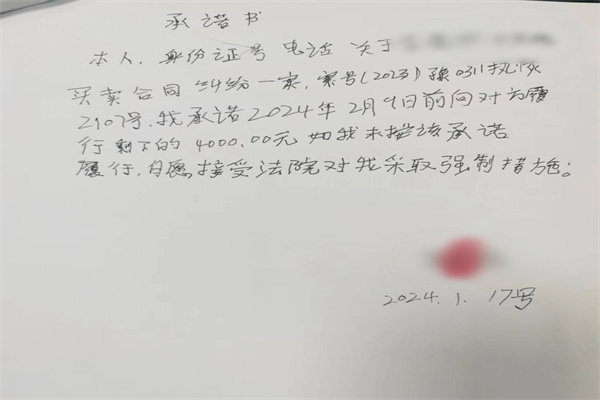 承诺书
本人，身份证号 电话 关于
买卖合同纠纷一案，案号(2023)豫0311执恢
2107号，我承诺2024年2月9日前向对方履
行剩下的4000.00元如我未按该承诺
履行，自愿接受法院对我采取强制措施。
2024.1.17号